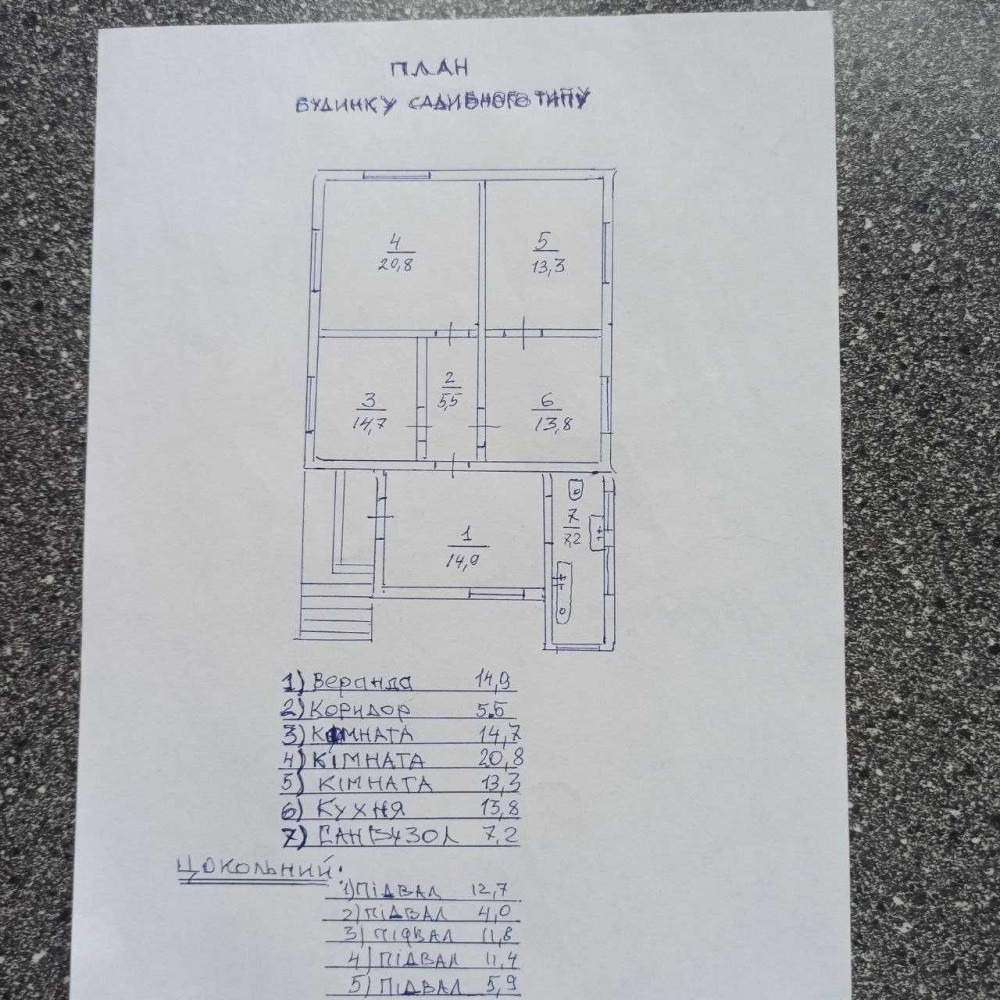 ПЛАН
БУДИНКУ САДИБНОГО ТИПУ
4
20,8
5
13,3
3
14,7
2
5,5
6
13,8
1
14,9
7
7,2
1) Веранда 14,9
2) Коридор 5.5
3) КІМНАТА 14,7
4) КІМНАТА 20,8
5) КІМНАТА 13,3
6) КУХНЯ 13,8
7) САНВУЗОЛ 7,2
ЦОКОЛЬНИЙ:
1) ПІДВАЛ 12,7
2) ПІДВАЛ 4,0
3) ПІДВАЛ 11,8
4) ПІДВАЛ 11,4
5) ПІДВАЛ 5,9